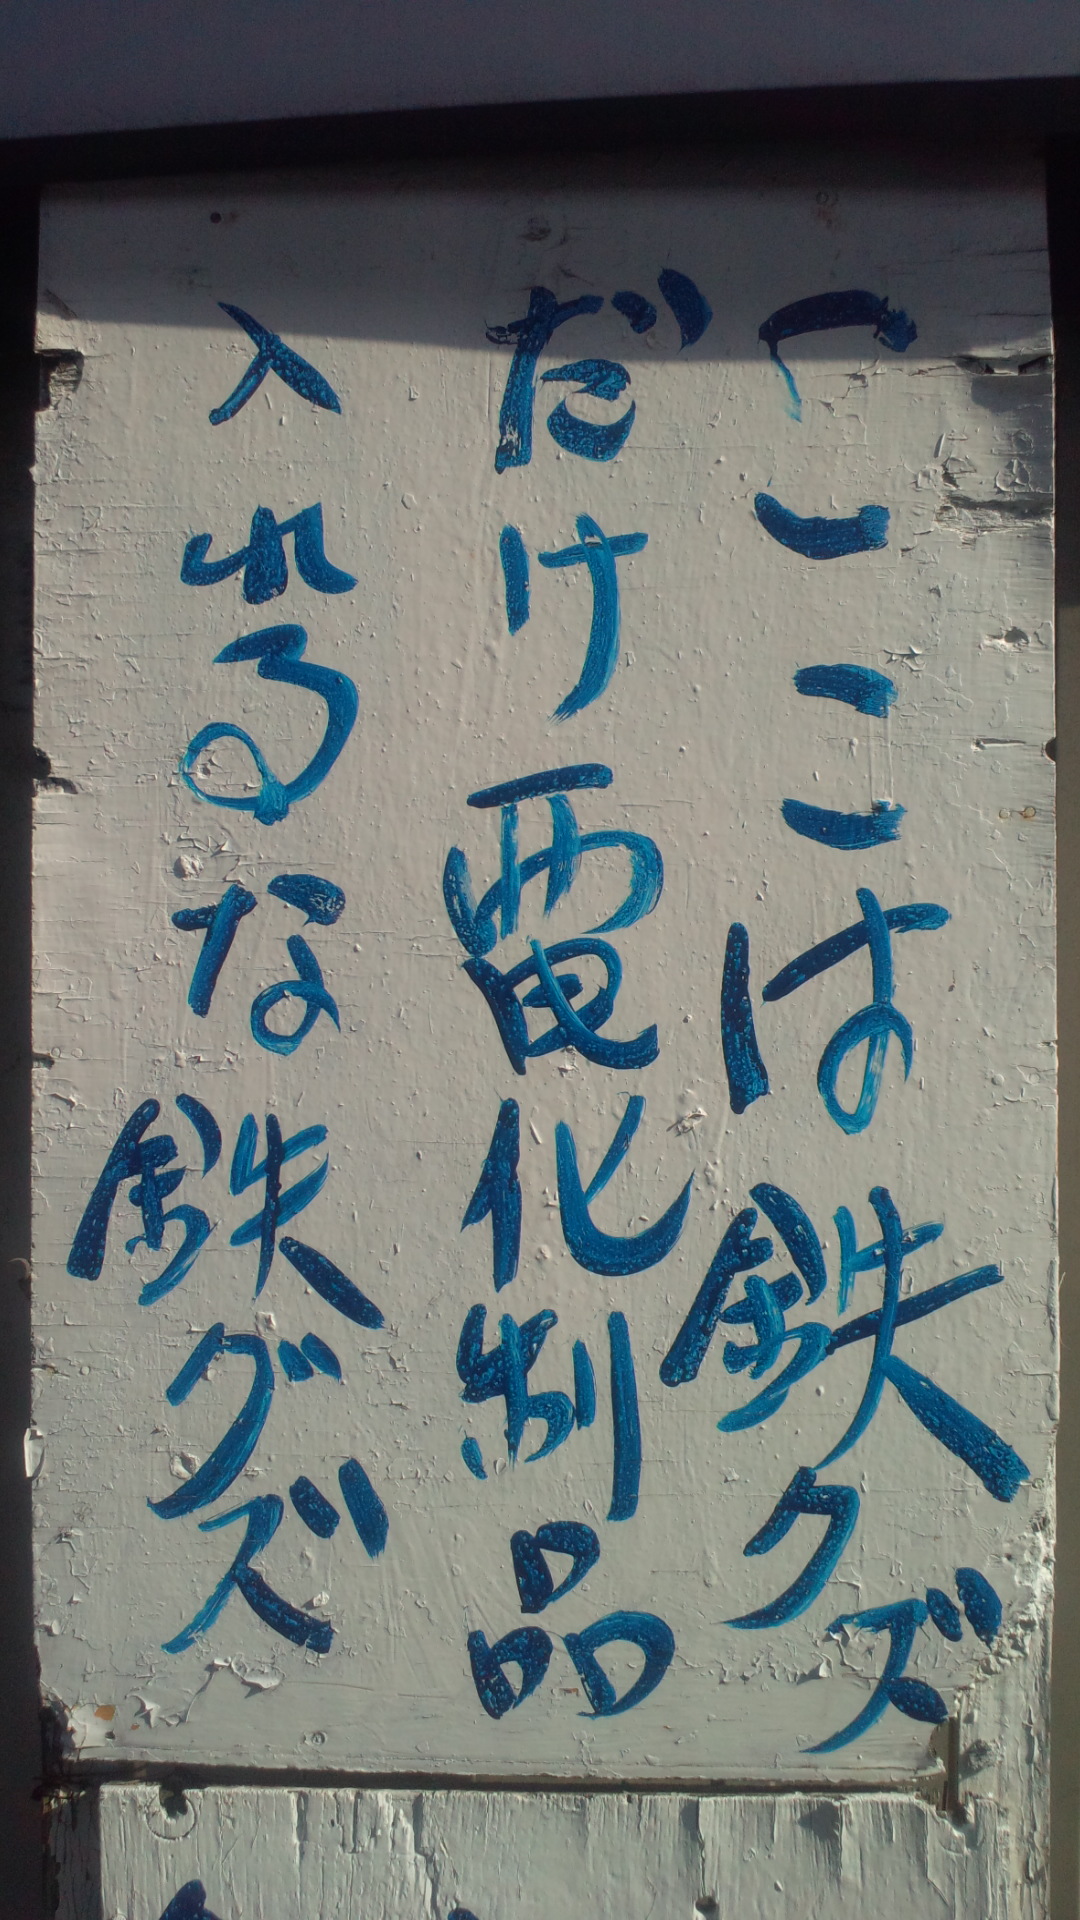 ここは鉄クズ
だけ電化制品
入れるな鉄グズ